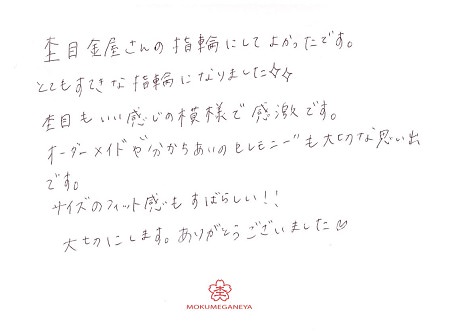 杢目金屋さんの指輪にしてよかったです。
とてもすてきな指輪になりました☆☆
杢目もいい感じの模様で感激です。
オーダーメイドや“分かちあいのセレモニー”も大切な思い出
です。
サイズのフィット感もすばらしい!!
大切にします。ありがとうございました♡
MOKUMEGANEYA